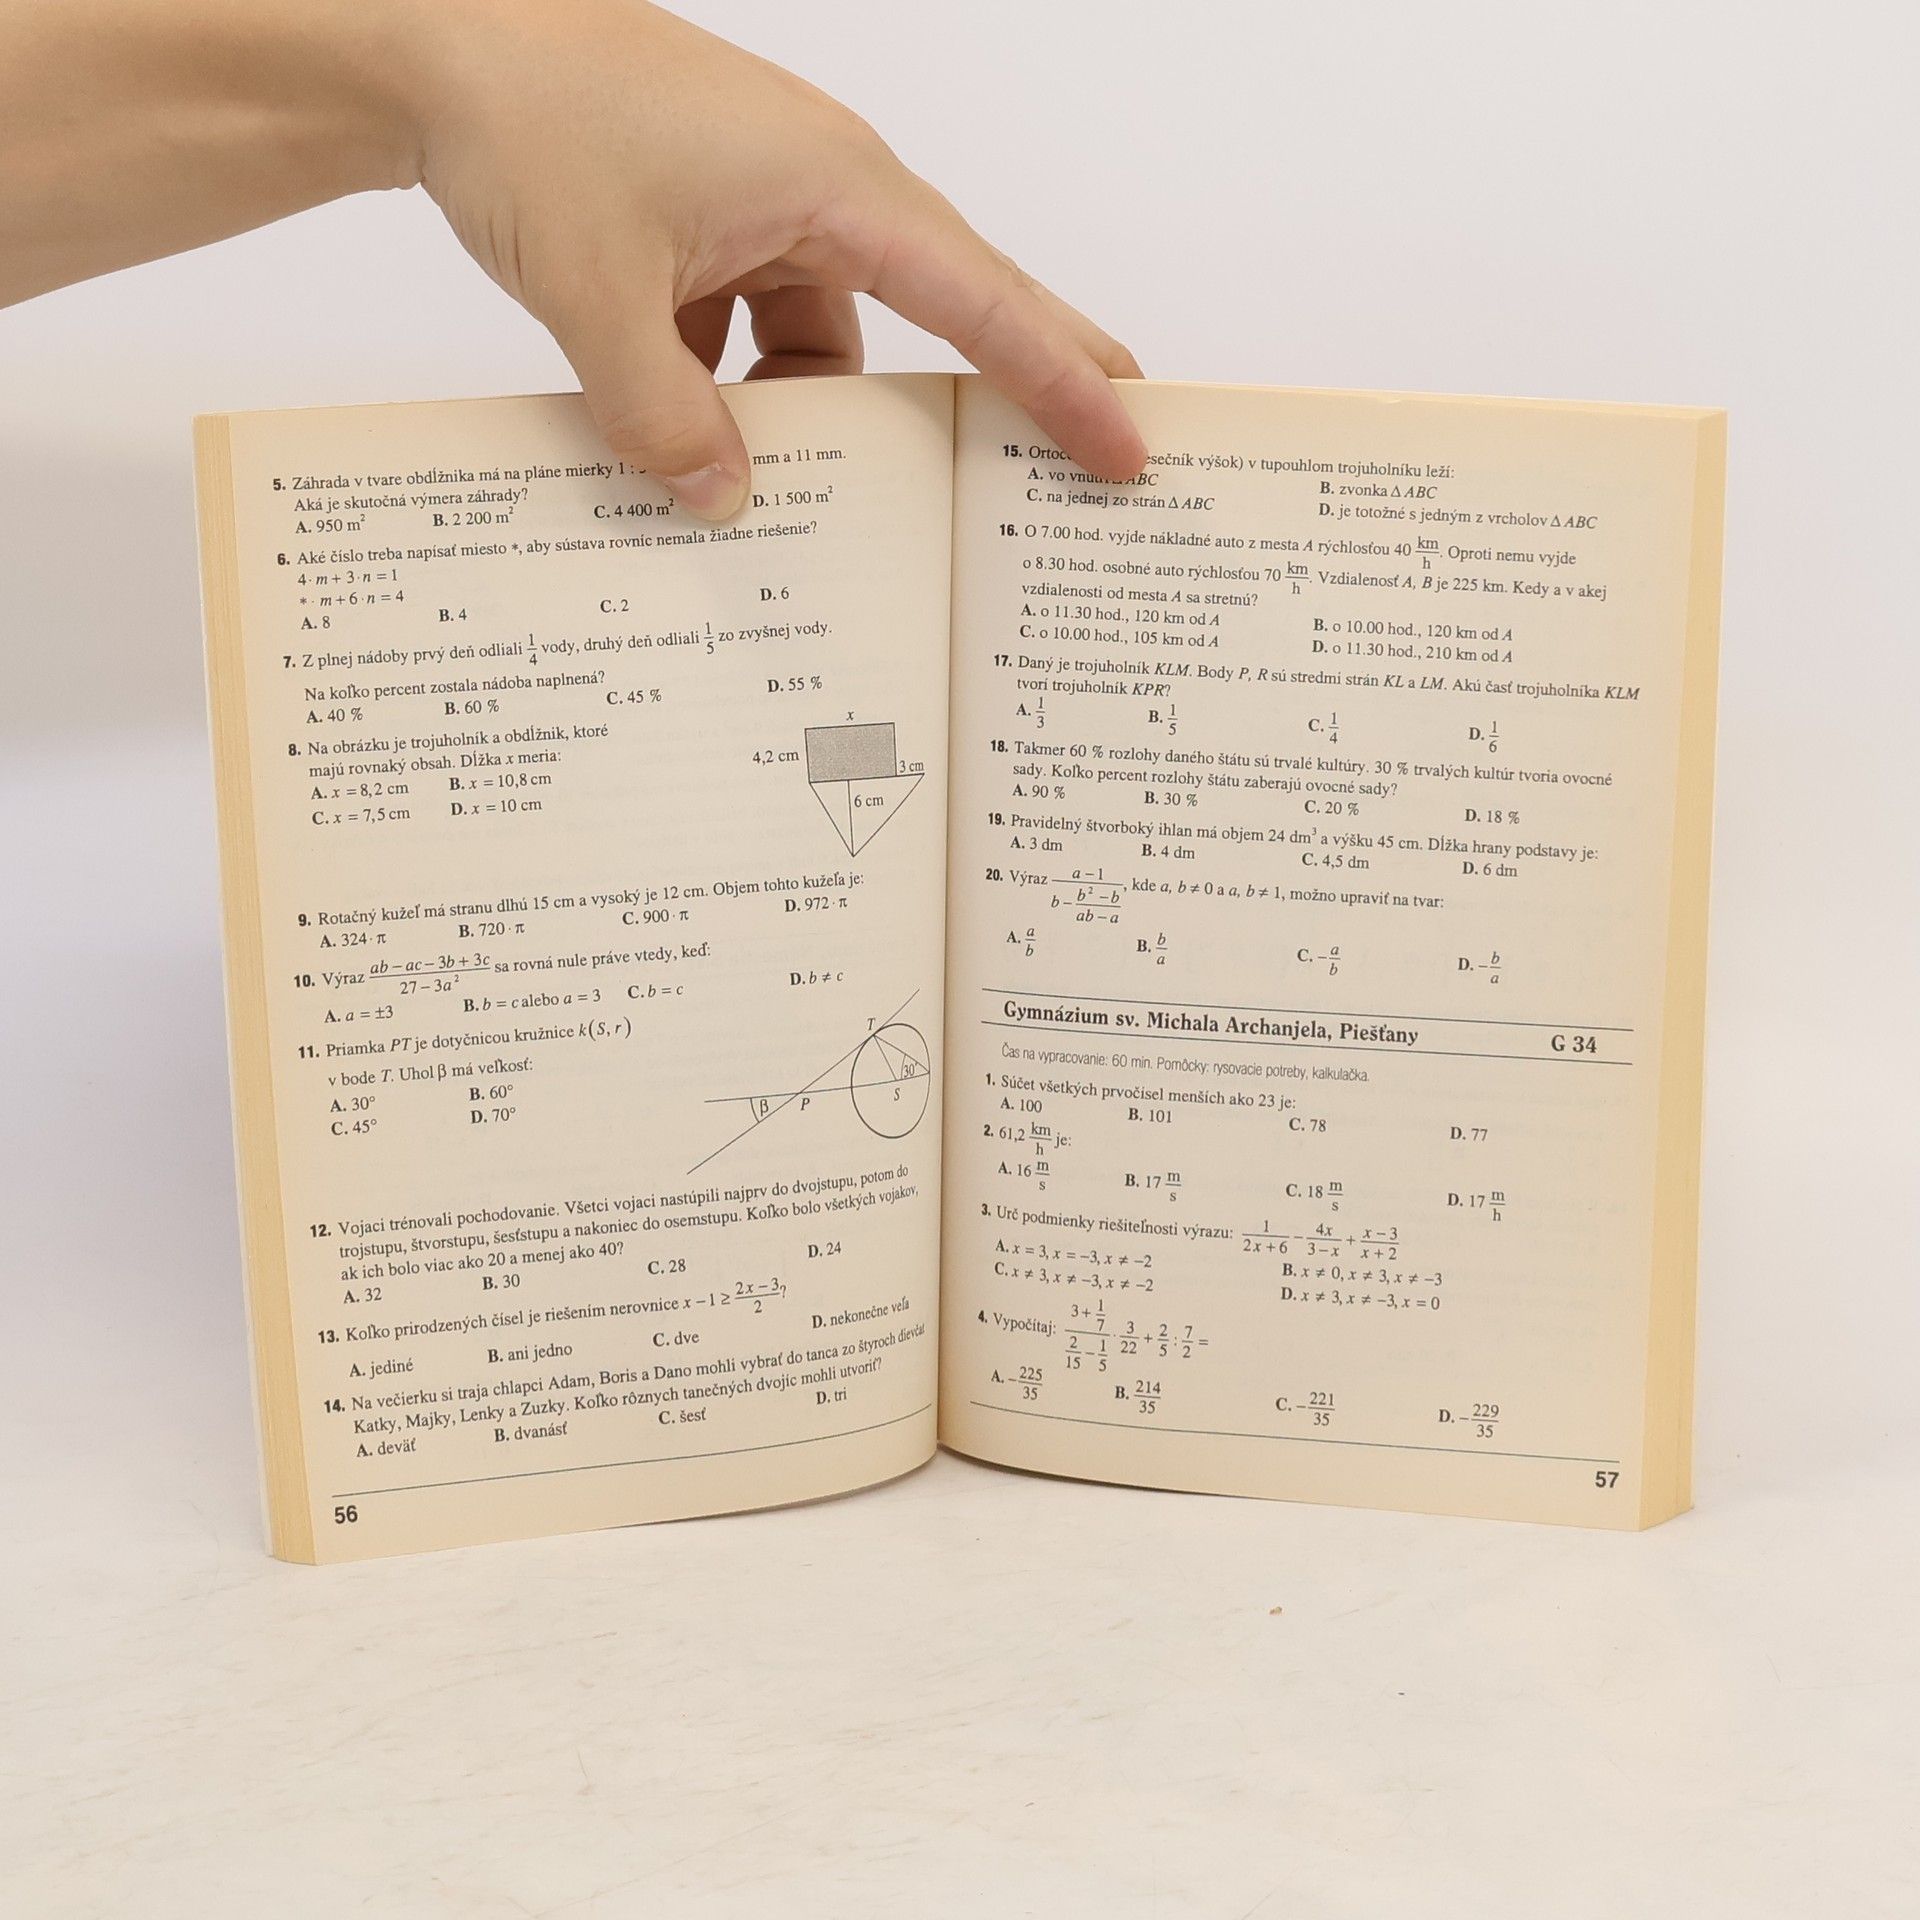 5. Záhrada v tvare obdĺžnika má na pláne mierky 1 : mm a 11 mm.
Aká je skutočná výmera záhrady?
A. 950 m² B. 2 200 m² C. 4 400 m² D. 1 500 m²
6. Aké číslo treba napísať miesto *, aby sústava rovníc nemala žiadne riešenie?
4· m + 3· n = 1
*· m + 6·n = 4
A. 8 B. 4 C. 2 D. 6
7. Z plnej nádoby prvý deň odliali 1/4 vody, druhý deň odliali 1/5 zo zvyšnej vody.
Na koľko percent zostala nádoba naplnená?
A. 40 % B. 60 % C. 45 % D. 55 %
8. Na obrázku je trojuholník a obdĺžnik, ktoré
majú rovnaký obsah. Dĺžka x meria:
A. x = 8,2 cm B. x = 10,8 cm
C. x = 7,5 cm D. x = 10 cm
x
4,2 cm
3 cm
6 cm
9. Rotačný kužeľ má stranu dlhú 15 cm a vysoký je 12 cm. Objem tohto kužeľa je:
A. 324· π B. 720· π C. 900· π D. 972· π
10. Výraz (ab – ac – 3b + 3c)/(27 – 3a²) sa rovná nule práve vtedy, keď:
A. a = ±3 B. b = c alebo a = 3 C. b = c D. b ≠ c
11. Priamka PT je dotyčnicou kružnice k(S, r)
v bode T. Uhol β má veľkosť:
A. 30° B. 60°
C. 45° D. 70°
T
30°
S
β
P
12. Vojaci trénovali pochodovanie. Všetci vojaci nastúpili najprv do dvojstupu, potom do
trojstupu, štvorstupu, šesťstupu a nakoniec do osemstupu. Koľko bolo všetkých vojakov,
ak ich bolo viac ako 20 a menej ako 40?
A. 32 B. 30 C. 28 D. 24
13. Koľko prirodzených čísel je riešením nerovnice x – 1 ≥ (2x – 3)/2?
A. jediné B. ani jedno C. dve D. nekonečne veľa
14. Na večierku si traja chlapci Adam, Boris a Dano mohli vybrať do tanca zo štyroch dievčat
Katky, Majky, Lenky a Zuzky. Koľko rôznych tanečných dvojíc mohli utvoriť?
A. deväť B. dvanásť C. šesť D. tri
56
15. v tupouhlom trojuholníku leží:
A. vo ABC B. zvonka Δ ABC
C. na jednej zo strán Δ ABC D. je totožné s jedným z vrcholov Δ ABC
16. O 7.00 hod. vyjde nákladné auto z mesta A rýchlosťou 40 km/h. Oproti nemu vyjde
o 8.30 hod. osobné auto rýchlosťou 70 km/h. Vzdialenosť A, B je 225 km. Kedy a v akej
vzdialenosti od mesta A sa stretnú?
A. o 11.30 hod., 120 km od A B. o 10.00 hod., 120 km od A
C. o 10.00 hod., 105 km od A D. o 11.30 hod., 210 km od A
17. Daný je trojuholník KLM. Body P, R sú stredmi strán KL a LM. Akú časť trojuholníka KLM
tvorí trojuholník KPR?
A. 1/3 B. 1/5 C. 1/4 D. 1/6
18. Takmer 60 % rozlohy daného štátu sú trvalé kultúry. 30 % trvalých kultúr tvoria ovocné
sady. Koľko percent rozlohy štátu zaberajú ovocné sady?
A. 90 % B. 30 % C. 20 % D. 18 %
19. Pravidelný štvorboký ihlan má objem 24 dm³ a výšku 45 cm. Dĺžka hrany podstavy je:
A. 3 dm B. 4 dm C. 4,5 dm D. 6 dm
20. Výraz (a – 1)/(b – (b² – b)/(ab – a)), kde a, b ≠ 0 a a, b ≠ 1, možno upraviť na tvar:
A. a/b B. b/a C. –a/b D. –b/a
Gymnázium sv. Michala Archanjela, Piešťany G 34
Čas na vypracovanie: 60 min. Pomôcky: rysovacie potreby, kalkulačka.
1. Súčet všetkých prvočísel menších ako 23 je:
A. 100 B. 101 C. 78 D. 77
2. 61,2 km/h je:
A. 16 m/s B. 17 m/s C. 18 m/s D. 17 m/h
3. Urč podmienky riešiteľnosti výrazu: 1/(2x + 6) – 4x/(3 – x) + (x – 3)/(x + 2)
A. x = 3, x = –3, x ≠ –2 B. x ≠ 0, x ≠ 3, x ≠ –3
C. x ≠ 3, x ≠ –3, x ≠ –2 D. x ≠ 3, x ≠ –3, x = 0
4. Vypočítaj: (3 + 1/7)/(2/15 – 1/5) · 3/22 + 2/5 : 7/2 =
A. –225/35 B. 214/35 C. –221/35 D. –229/35
57